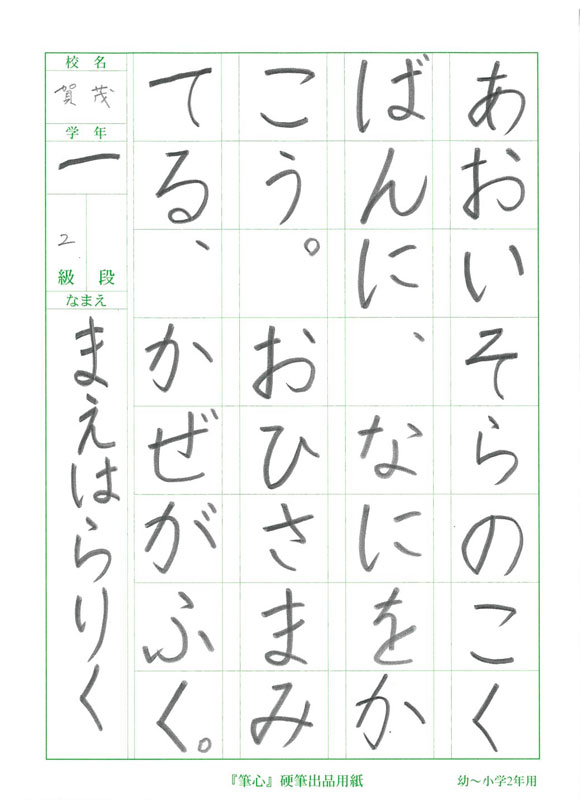 あおいそらのこく
ばんに、なにをか
こう。おひさまみ
てる、かぜがふく。
校名
賀茂
学年
一
2
級 段
なまえ
まえはらりく
『筆心』硬筆出品用紙
幼〜小学2年用